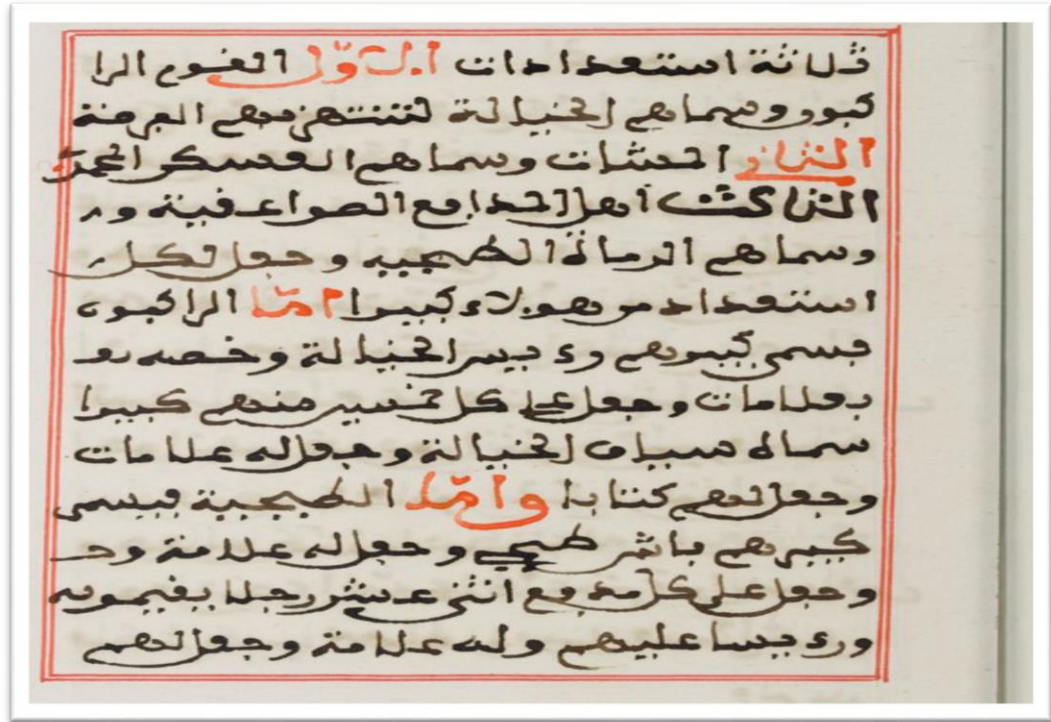 ثلاثة استعدادات الاول القوم الرا
كبون وسماهم الخيالة لتنتهز بهم الفرصة
الثاني المشات وسماهم العسكر المحمدي
الثالث اهل المدافع الصواعقية ور
وسماهم الرماة الطبجيه وجعل لكل
استعداد من هولاء كبيرا اما الراكبون
فسمى كبيرهم رءييس الخيالة وخصه بعـ
بعلامات وجعل على كل خمسين منهم كبيرا
سماه سياف الخيالة وجعل له علامات
وجعل لهم كتابا واما الطبجية فيسمى
كبيرهم باش طبجي وجعل له علامة وجـ
وجعل على كل مدفع اثنى عشر رجلا يقيمونه
ورءييسا عليهم وله علامة وجعل لهم